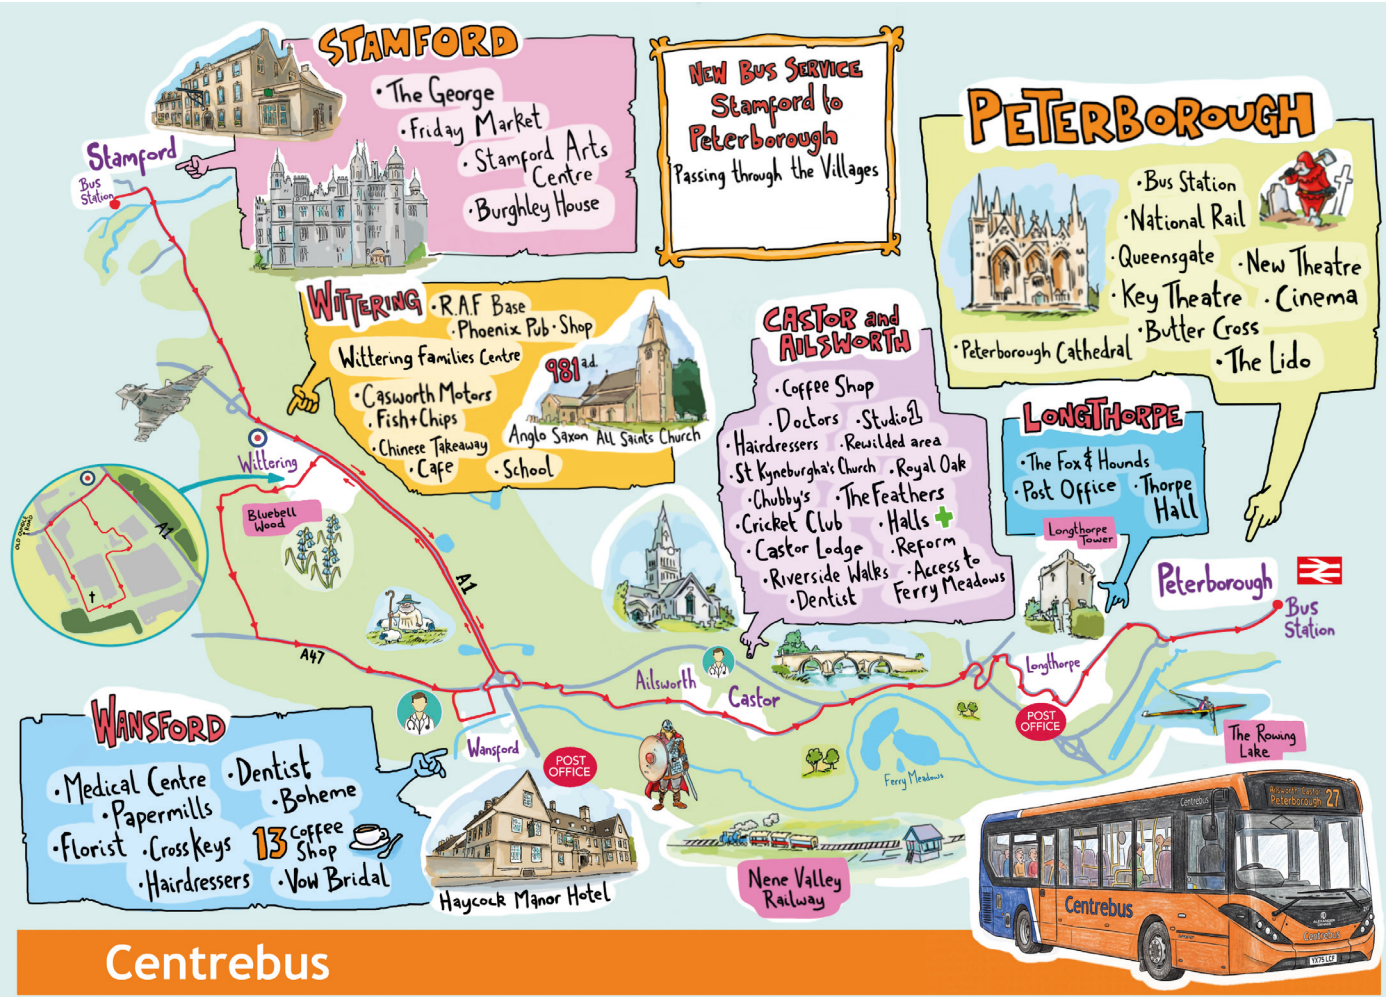 STAMFORD
• The George
• Friday Market
• Stamford Arts
Centre
• Burghley House
Stamford
Bus
Station
NEW BUS SERVICE
Stamford to
Peterborough
Passing through the Villages
PETERBOROUGH
• Bus Station
• National Rail
• Queensgate
• New Theatre
• Key Theatre
• Cinema
• Butter Cross
• Peterborough Cathedral
• The Lido
WITTERING
• R.A.F Base
• Phoenix Pub • Shop
Wittering Families Centre
• Casworth Motors
• Fish + Chips
• Chinese Takeaway
• Cafe
• School
981 a.d.
Anglo Saxon All Saints Church
CASTOR and
AILSWORTH
• Coffee Shop
• Doctors
• Studio 1
• Hairdressers
• Rewilded area
• St Kyneburgha's Church
• Royal Oak
• Chubby's
• The Feathers
• Cricket Club
• Halls
• Castor Lodge
• Reform
• Riverside Walks
• Access to
Ferry Meadows
• Dentist
LONGTHORPE
• The Fox & Hounds
• Post Office
• Thorpe
Hall
Longthorpe
Tower
Wittering
Bluebell
Wood
OLD OUNDLE
ROAD
A1
A1
A47
Peterborough
Bus
Station
Ailsworth
Castor
Longthorpe
POST
OFFICE
Wansford
POST
OFFICE
Ferry Meadows
The Rowing
Lake
WANSFORD
• Medical Centre
• Dentist
• Papermills
• Boheme
• Florist
• Cross Keys
13 Coffee
Shop
• Hairdressers
• Vow Bridal
Haycock Manor Hotel
Nene Valley
Railway
Centrebus
Ailsworth Castor
Peterborough 27
Centrebus
Centrebus
ALEXANDER
DENNIS
Centrebus
YX75 LCF